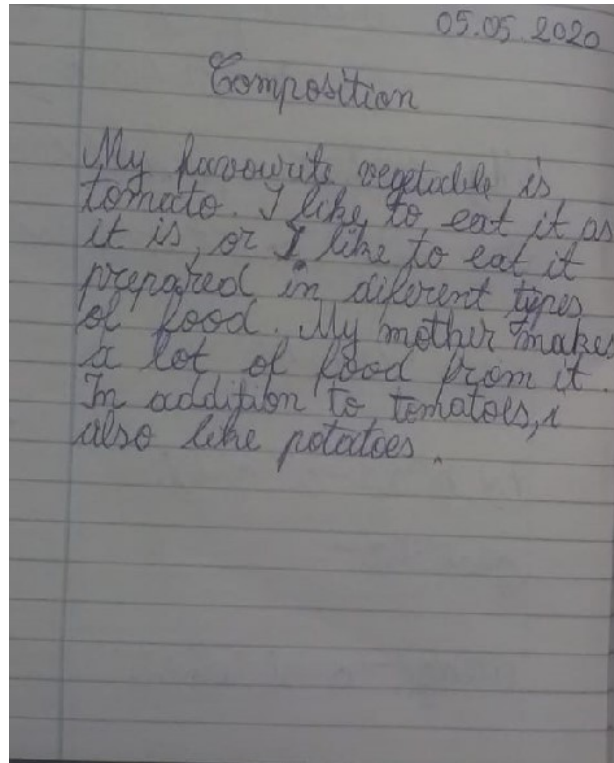 05.05.2020
Composition
My favourite vegetable is
tomato. I like to eat it as
it is, or I like to eat it
prepared in diferent types
of food. My mother makes
a lot of food from it.
In addition to tomatoes, i
also like potatoes.